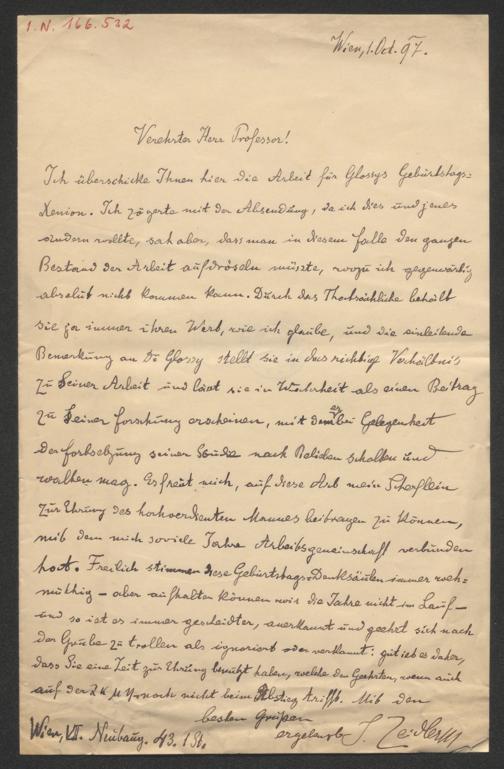 I.N. 166.532
Wien, 1. Oct. 97.
Verehrter Herr Professor!
Ich überschicke Ihnen hier die Arbeit für Glossys Geburtstags=
Xenion. Ich zögerte mit der Absendung, da ich dies und jenes
ändern wollte, sah aber, dass man in diesem Falle den ganzen
Bestand der Arbeit aufdröseln müszte, wozu ich gegenwärtig
absolut nicht kommen kann. Durch das Thatsächliche behält
sie ja immer ihren Wert, wie ich glaube, und die einleitende
Bemerkung an Dr Glossy stellt sie in das richtige Verhältnis
zu Seiner Arbeit und läszt sie in Wahrheit als einen Beitrag
zu Seiner Forschung erscheinen, mit dem er bei Gelegenheit
der Fortsetzung seiner Studie nach Belieben schalten und
walten mag. Es freut mich, auf diese Art mein Scherflein
zur Ehrung des hochverdienten Mannes beitragen zu können,
mit dem mich soviele Jahre Arbeitsgemeinschaft verbunden
hat. Freilich stimmen diese Geburtstags-Denksäulen immer weh=
müthig – aber aufhalten können wir die Jahre nicht im Lauf –
und so ist es immer gescheidter, anerkannt und geehrt sich nach
der Grube zu trollen als ignoriert oder verkannt: gut ist es daher,
dass Sie eine Zeit zur Ehrung benutzt haben, welche den Geehrten, wenn auch
auf der noch nicht beim Abstieg trifft. Mit den
besten Grüßen
ergebenst J. Zeidler
Wien, VII. Neubaug. 43. I St.